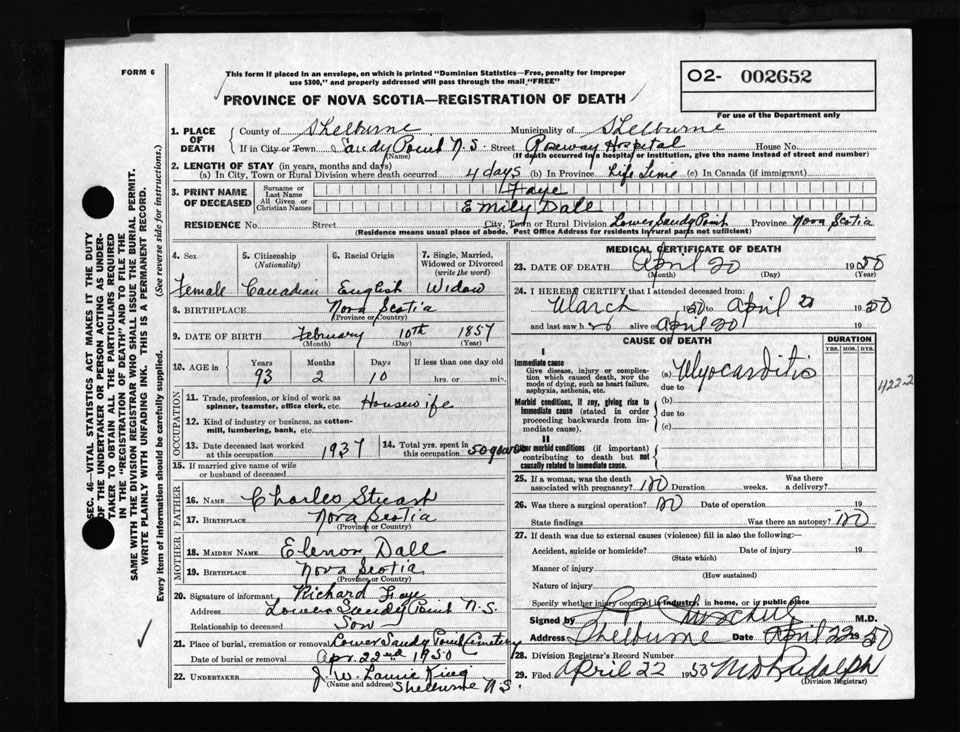 FORM 6
This form if placed in an envelope, on which is printed "Dominion Statistics—Free, penalty for improper
use $300," and properly addressed will pass through the mail "FREE"
02- 002652
For use of the Department only
PROVINCE OF NOVA SCOTIA—REGISTRATION OF DEATH
SEC. 46—VITAL STATISTICS ACT MAKES IT THE DUTY
OF THE UNDERTAKER OR PERSON ACTING AS UNDER-
TAKER TO OBTAIN ALL THE PARTICULARS REQUIRED
IN THE "REGISTRATION OF DEATH" AND TO FILE THE
SAME WITH THE DIVISION REGISTRAR WHO SHALL ISSUE THE BURIAL PERMIT.
WRITE PLAINLY WITH UNFADING INK. THIS IS A PERMANENT RECORD.
Every item of information should be carefully supplied. (See reverse side for instructions.)
1. PLACE OF DEATH County of Shelburne Municipality of Shelburne
If in City or Town Sandy Point N.S. Street Roseway Hospital House No.
(Name) (If death occurred in a hospital or institution, give the name instead of street and number)
2. LENGTH OF STAY (in years, months and days)
(a) In City, Town or Rural Division where death occurred 4 days (b) In Province Life Time (c) In Canada (if immigrant)
3. PRINT NAME OF DECEASED Surname or Last Name Faye
All Given or Christian Names Emily Dall
RESIDENCE No. Street City, Town or Rural Division Lower Sandy Point Province Nova Scotia
(Residence means usual place of abode. Post Office Address for residents in rural parts not sufficient)
4. Sex 5. Citizenship (Nationality) 6. Racial Origin 7. Single, Married, Widowed or Divorced (write the word)
Female Canadian English Widow
8. BIRTHPLACE Nova Scotia
(Province or Country)
9. DATE OF BIRTH February 10th 1857
(Month) (Day) (Year)
10. AGE in Years Months Days If less than one day old
93 2 10 hrs. or min.
OCCUPATION
11. Trade, profession, or kind of work as spinner, teamster, office clerk, etc. Housewife
12. Kind of industry or business, as cotton-mill, lumbering, bank, etc.
13. Date deceased last worked at this occupation 1937 14. Total yrs. spent in this occupation 50 years
15. If married give name of wife or husband of deceased
FATHER
16. NAME Charles Stuart
17. BIRTHPLACE Nova Scotia
(Province or Country)
MOTHER
18. MAIDEN NAME Elenor Dall
19. BIRTHPLACE Nova Scotia
(Province or Country)
20. Signature of informant Richard Faye
Address Lower Sandy Point N.S.
Relationship to deceased Son
21. Place of burial, cremation or removal Lower Sandy Point Cemetery
Date of burial or removal Apr. 22nd 1950
22. UNDERTAKER J. W. Laurie King
(Name and address) Shelburne N.S.
MEDICAL CERTIFICATE OF DEATH
23. DATE OF DEATH April 20 1950
(Month) (Day) (Year)
24. I HEREBY CERTIFY that I attended deceased from:
March 1950 to April 20 1950
and last saw her alive on April 20 19
CAUSE OF DEATH DURATION
YRS. MOS. DYS.
I
Immediate cause
Give disease, injury or complication which caused death, NOT the mode of dying, such as heart failure, asphyxia, asthenia, etc.
(a) Myocarditis
due to
422-2
Morbid conditions, if any, giving rise to immediate cause (stated in order proceeding backwards from immediate cause).
(b)
due to
(c)
II
Other morbid conditions (if important) contributing to death but not causally related to immediate cause.
25. If a woman, was the death associated with pregnancy? No Duration weeks. Was there a delivery?
26. Was there a surgical operation? No Date of operation 19
State findings Was there an autopsy? No
27. If death was due to external causes (violence) fill in also the following:—
Accident, suicide or homicide? Date of injury 19
(State which)
Manner of injury
(How sustained)
Nature of injury
Specify whether injury occurred in industry, in home, or in public place
Signed by M.D.
Address Shelburne Date April 22 1950
28. Division Registrar's Record Number
29. Filed April 22 1950 Rudolph
(Division Registrar)